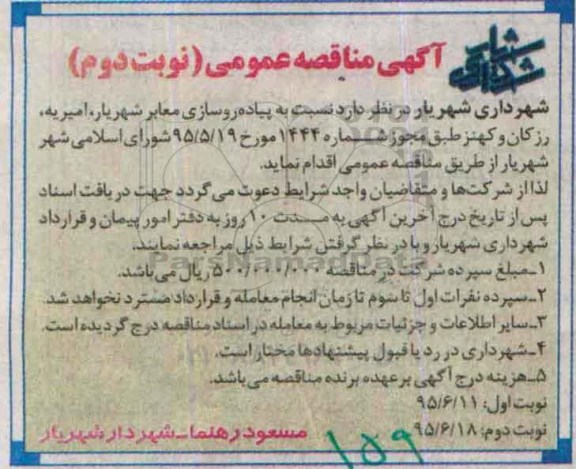 شهرداری شهریار
آگهی مناقصه عمومی (نوبت دوم)
شهرداری شهریار در نظر دارد نسبت به پیاده‌روسازی معابر شهریار، امیریه،
رزکان و کهنز طبق مجوز شماره ۱۴۴۴ مورخ ۹۵/۵/۱۹ شورای اسلامی شهر
شهریار از طریق مناقصه عمومی اقدام نماید.
لذا از شرکت‌ها و متقاضیان واجد شرایط دعوت می‌گردد جهت دریافت اسناد
پس از تاریخ درج آخرین آگهی به مدت ۱۰ روز به دفتر امور پیمان و قرارداد
شهرداری شهریار و با در نظر گرفتن شرایط ذیل مراجعه نمایند.
۱ـ مبلغ سپرده شرکت در مناقصه ۵۰۰/۰۰۰/۰۰۰ ریال می‌باشد.
۲ـ سپرده نفرات اول تا سوم تا زمان انجام معامله و قرارداد مسترد نخواهد شد.
۳ـ سایر اطلاعات و جزئیات مربوط به معامله در اسناد مناقصه درج گردیده است.
۴ـ شهرداری در رد یا قبول پیشنهادها مختار است.
۵ـ هزینه درج آگهی بر عهده برنده مناقصه می‌باشد.
نوبت اول: ۹۵/۶/۱۱
نوبت دوم: ۹۵/۶/۱۸
مسعود رهنما ـ شهردار شهریار
۱۵۹
ParsNamadData